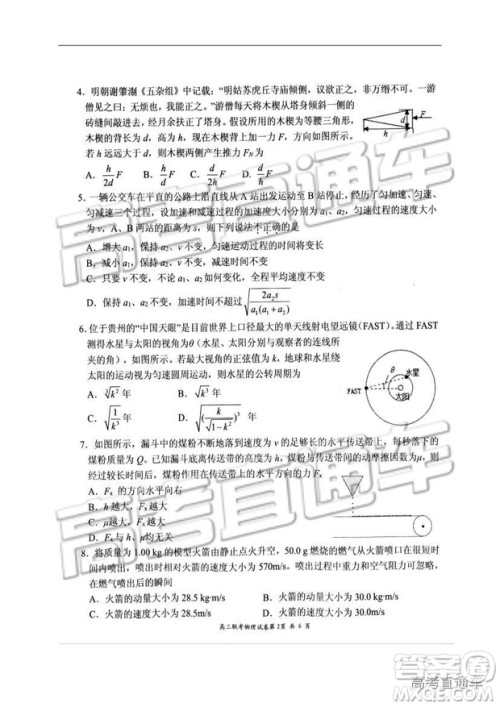 4. 明朝谢肇淛《五杂组》中记载：“明姑苏虎丘寺庙倾侧，议欲正之，非万缗不可。一游
僧见之曰：无烦也，我能正之。”游僧每天将木楔从塔身倾斜一侧的
砖缝间敲进去，经月余扶正了塔身。假设所用的木楔为等腰三角形，
木楔的背长为 d，高为 h，现在木楔背上加一力 F，方向如图所示，
若 h 远远大于 d，则木楔两侧产生推力 FN为
A．h/2d F B．d/h F C．h/d F D．d/2h F
5. 一辆公交车在平直的公路上沿直线从 A 站出发运动至 B 站停止，经历了匀加速、匀速、
匀减速三个过程，设加速和减速过程的加速度大小分别为 a1、a2，匀速过程的速度大小
为 v，A、B 两站的距离为 s，则下列说法不正确的是
A．增大 a1，保持 a2、v 不变，匀速运动过程的时间将变长
B．减小 a1，保持 a2、v 不变，匀速运动过程的时间将变长
C．只要 v 不变，不论 a1、a2 如何变化，平均速度不变
D．保持 a1、a2 不变，不论 v 多大，加速时间不超过 √(2a2s/(a1(a1+a2)))
6. 位于贵州的“中国天眼”是目前世界上口径最大的单天线射电望远镜(FAST)。通过 FAST
测得水星与太阳的视角为θ（水星、太阳分别与观察者的连线所
夹的角）。若最大视角的正弦值为 k，地球和水星绕
太阳的运动视为匀速圆周运动，则水星的公转周期为
A．∛k² 年 B．√k³ 年
C．√(1/k³) 年 D．√(k/√(1−k²))³ 年
FAST θ 水星 太阳
7. 如图所示，漏斗中的煤粉不断地落到速度为 v 的足够长的水平传送带上，每秒落下的
煤粉质量为 Q。已知煤粉与传送带间的动摩擦因数为μ，
底端距传送带高度为 h，煤粉作用在传送带上的水平方向的力 Fx
A．Fx 的方向水平向右
B．h 越大，Fx 越大
C．μ越大，Fx 越大
D．Fx 与 h、μ均无关
8. 将质量为 1.00 kg 的模型火箭由静止点火升空，50.0 g 燃烧的燃气从火箭喷口在很短时
间内全部喷出，火箭在燃气喷出后的瞬间相对于燃气的速度大小为 570m/s，在
燃气喷出后的瞬间
A．火箭的动量大小为 28.5 kg·m/s B．火箭的动量大小为 30.0 kg·m/s
C．火箭的速度大小为 28.5m/s D．火箭的速度大小为 30.0m/s
高三联考物理试卷第2页 共 6 页
高考直通车